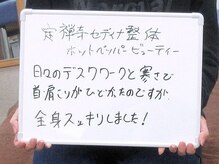 産禅寺セディナ整体
ホットペッパービューティー
日々のデスクワークと寒さで
首肩こりがひどかったのですが
全身スッキリしました!